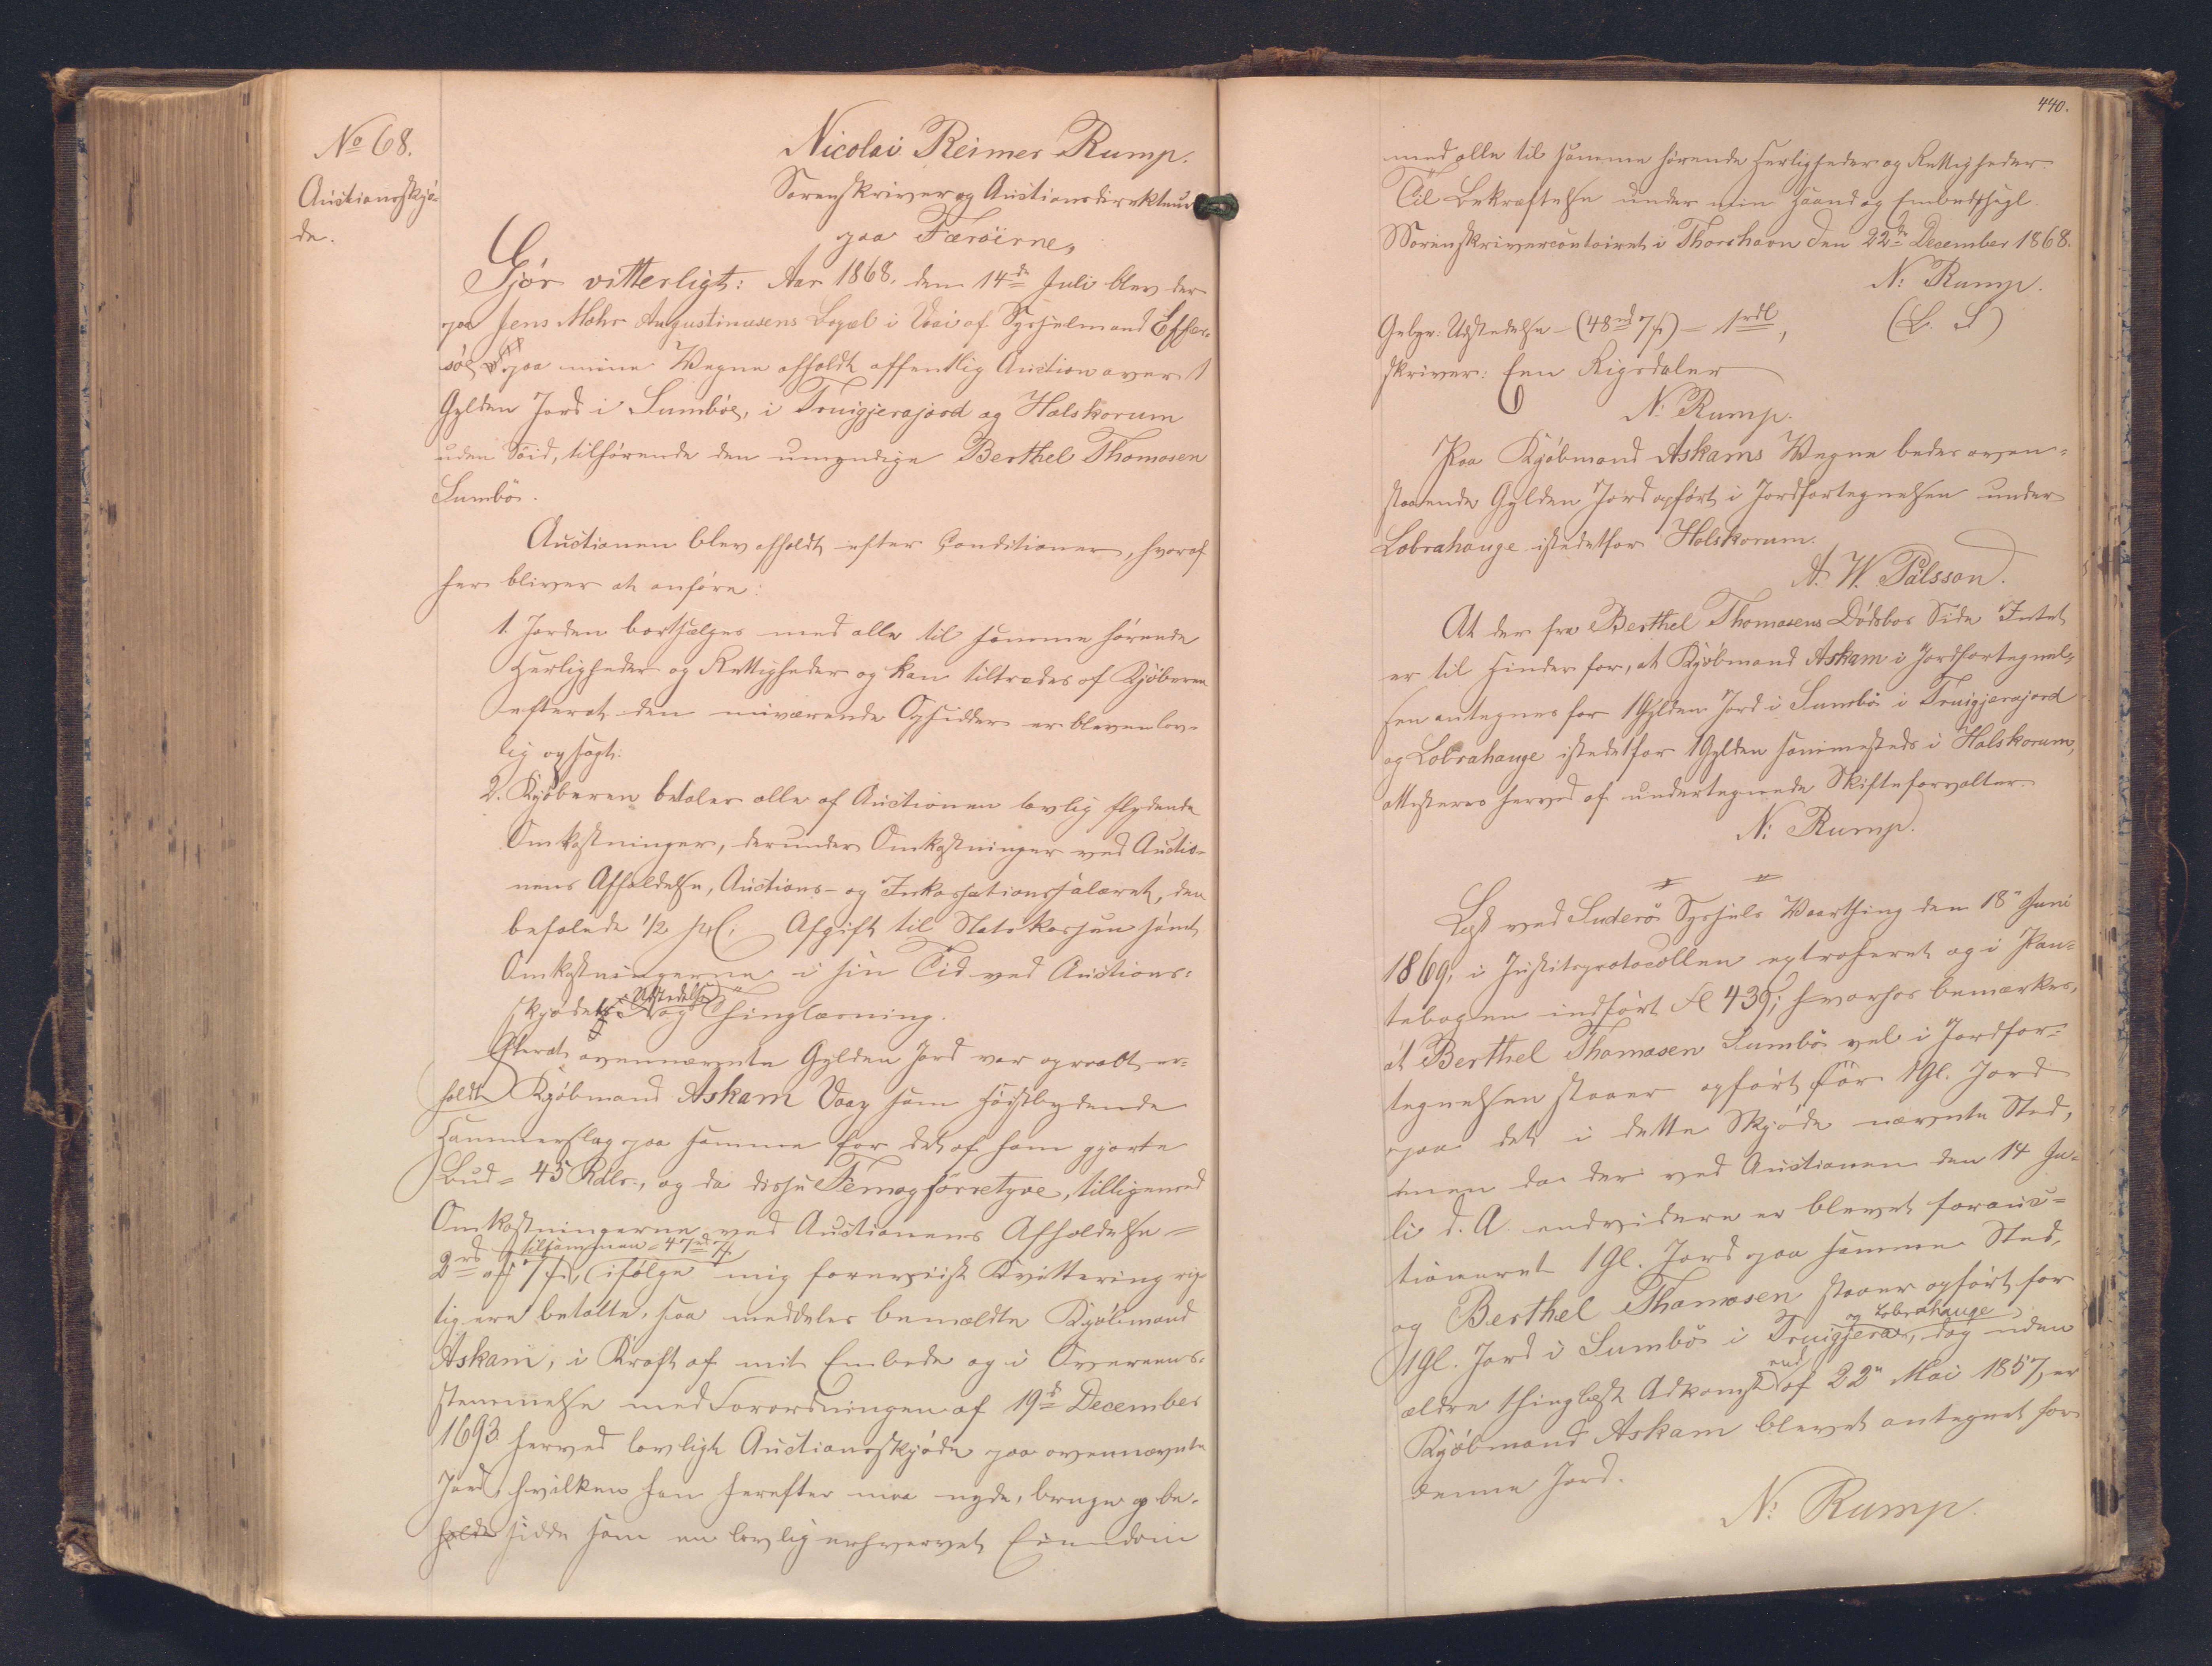 No 68.
Auctionsskjö-
de.
Nicolai Reimer Rump.
Sorenskriver og Auctionsdirekteur
paa Færöerne,
Gjör vitterligt: Aar 1868, den 14de Juli blev der
paa Jens Mohr Augustinusens Bopæl i Vaai af Sysselmand Effer-
söe paa mine Vegne afholdt offentlig Auction over 1
Gylden Jord i Sumböe, i Truigjerajord og Halskorum
uden Söid, tilhörende den umyndige Berthel Thomasen
Sumbö.
Auctionen blev afholdt efter Conditioner, hvoraf
her bliver at anföre:
1. Jorden bortsælges med alle til samme hörende
Herligheder og Rettigheder og kan tiltrædes af Kjöberen
efterat den nuværende Opsidder er bleven lov-
lig opsagt.
2. Kjöberen betaler alle af Auctionen lovlig flydende
Omkostninger, derunder Omkostninger ved Auctio-
nens Afholdelse, Auctions- og Inkassationssalæret, den
befalede 1/2 prC. Afgift til Statskassen samt
Omkostningerne i sin Tid ved Auctions-
skjödets Udstedelse og Thinglæsning.
Efterat ovennævnte Gylden Jord var opraabt er-
holdt Kjöbmand Askam Vaag som höistbydende
Hammerslag paa samme for det af ham gjorte
Bud = 45 Rdlr., og da disse Femogfirretyve, tilligemed
Omkostningerne ved Auctionens Afholdelse =
2rd 7s, tilsammen = 47rd 7s ifölge mig foreviist Kvittering rig-
tig ere betalte, saa meddeles bemældte Kjöbmand
Askam, i Kraft af mit Embede og i Overeens-
stemmelse med Forordningen af 19de December
1693 herved lovligt Auctionsskjöde paa ovennævnte
Jord, hvilken han herefter maa nyde, bruge og be-
holde sidde som en lovlig erhvervet Eiendom
440.
med alle til samme hörende Herligheder og Rettigheder.
Til Bekræftelse under min Haand og Embedssegl.
Sorenskrivercontoiret i Thorshavn den 22de December 1868.
N: Rump.
Gebyr: Udstedelse - (48rd 7s) = 1rdl, (L. S)
skriver: Een Rigsdaler
N. Rump.
Paa Kjöbmand Askams Vegne bedes oven-
staaende Gylden Jord opfört i Jordfortegnelsen under
Lobrahauge istedetfor Halskorum.
A. W. Pálsson.
At der fra Berthel Thomasens Dödsbos Side Intet
er til Hinder for, at Kjöbmand Askam i Jordfortegnel-
sen antegnes for 1 Gylden Jord i Sumbö i Truigjerajord
og Lobrahauge istedetfor 1 Gylden sammesteds i Halskorum,
attesteres herved af undertegnede Skifteforvalter.
N: Rump.
Læst ved Suderö Syssels Vaarthing den 18de Juni
1869, i Justitsprotocollen extraheret og i Pan-
tebogen indfört Fol 439; hvorhos bemærkes,
at Berthel Thomasen Sumbö vel i Jordfor-
tegnelsen staaer opfört for 1 Gl. Jord
paa det i dette Skjöde nævnte Sted,
men da der ved Auctionen den 14 Ju-
li d. A. endvidere er blevet forauc-
tioneret 1 Gl. Jord paa samme Sted,
og Berthel Thomasen staaer opfört for
1 Gl. Jord i Sumbö i Truigjera og Lobrahauge, dog uden
ældre thinglæst Adkomst end af 22de Mai 1857, er
Kjöbmand Askam blevet antegnet for
denne Jord.
N: Rump.